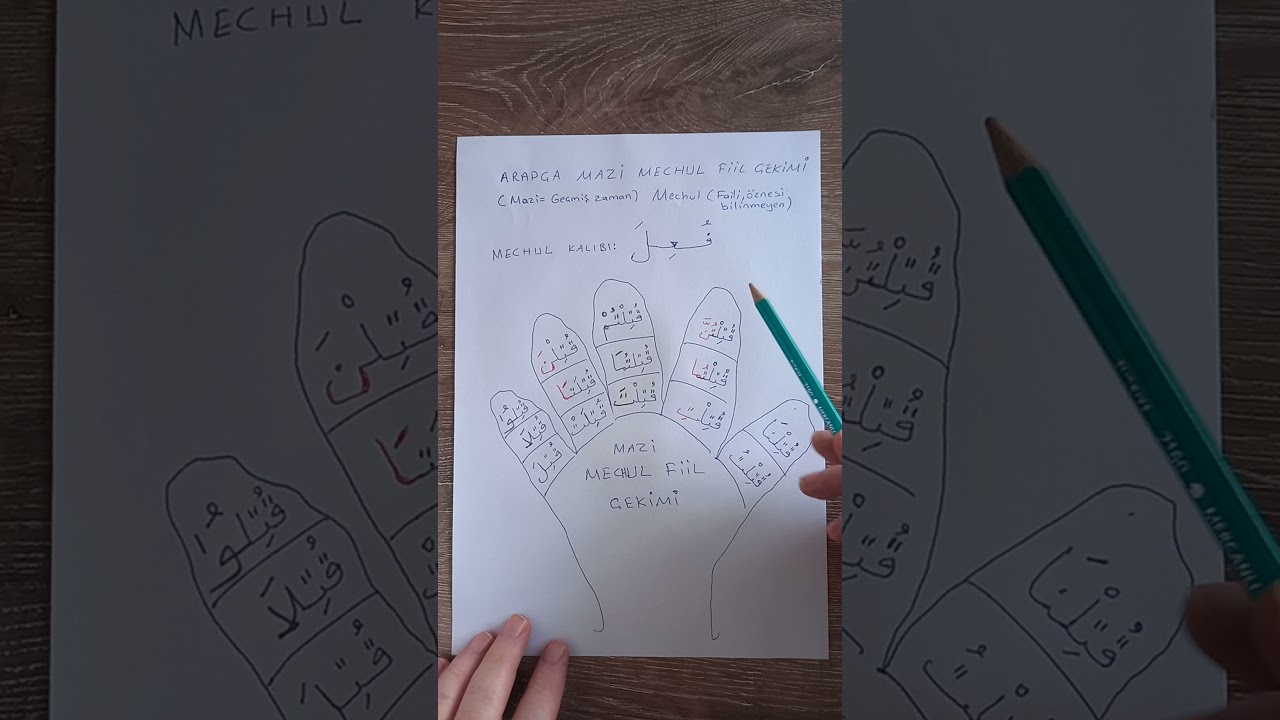 ARAPGA MAZİ MECHUL FİİL GEKİMİ
(Mazi= Geçmiş zaman) Mechul (Faili, öznesi bilinmeyen)
MECHUL KALIBI: فُعِلَ
قُتِلُوا
قُتِلَا
قُتِلَ
قُتِلْنَ
قُتِلَتَا
قُتِلَتْ
قُتِلْتُمْ
قُتِلْتُمَا
قُتِلْتَ
قُتِلْتُنَّ
قُتِلْتُمَا
قُتِلْتِ
قُتِلْنَا
قُتِلْتُ
MAZİ
MECHUL FİİL
GEKİMİ
MECHUL